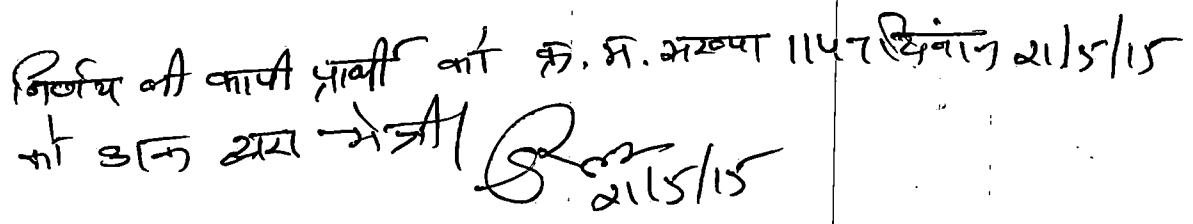 निर्णय की कापी प्रार्थी को क्र. म. संख्या 1147 दिनांक 21/5/15
को डाक द्वारा भेजी।
21/5/15